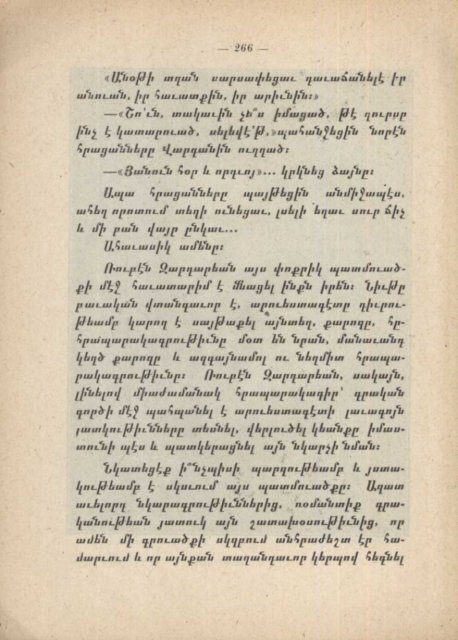 — 266 —
«Անօթի տղան սարսափեցաւ դաւաճանելէ իր
անուան, իր հաւատքին, իր արիւնին։»
—«Շո՛ւն, տակաւին չե՞ս իմացած, թէ դուրսը
ինչ է կատարուած, սելեվէ՛թ,»պահանջեցին նորէն
հրացանները Վարդանին ուղղած։
—«Յանուն հօր և որդւոյ»... կրկնեց ձայնը։
Ապա հրացանները պայթեցին անմիջապէս,
ահեղ որոտում տեղի ունեցաւ, լսելի եղաւ սուր ճիչ
և մի բան վայր ընկաւ...
Ահաւասիկ ամենը։
Ռուբէն Զարդարեան այս փոքրիկ պատմուած-
քի մէջ հաւատարիմ է մնացել ինքն իրեն։ Նիւթը
բաւական վտանգաւոր է, արուեստագէտը դիւրու-
թեամբ կարող է սայթաքել այնտեղ, քարոզը, հր-
հրապարակագրութիւնը մօտ են նրան, մանաւանդ
կեղծ քարոզը և ազգայնամոլ ու նեղմիտ հրապա-
րակագրութիւնը։ Ռուբէն Զարդարեան, սակայն,
լինելով միաժամանակ հրապարակագիր՝ գրական
գործի մէջ պահպանել է արուեստագէտի լաւագոյն
յատկութիւնները տեսնել, վերլուծել կեանքը իմաս-
տունի պէս և պատկերացնել այն նկարչի նման։
Նկատեցէք ի՞նչպիսի պարզութեամբ և յստա-
կութեամբ է սկսւում այս պատմուածքը։ Ազատ
աւելորդ նկարագրութիւններից, ռօմանտիք գրա-
կանութեան յատուկ այն շատախօսութիւնից, որ
ամեն մի գրուածքի սկզբում անհրաժեշտ էր հա-
մարւում և որ այնքան տաղանդաւոր կերպով հեգնել